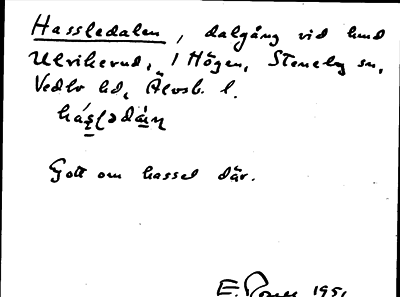 Hassledalen, dalgång vid lund
Ulrikerud, 1 Högen, Steneby sn,
Vedbo hd, Älvsb. l.
Gott om hassel där.
E. 1951